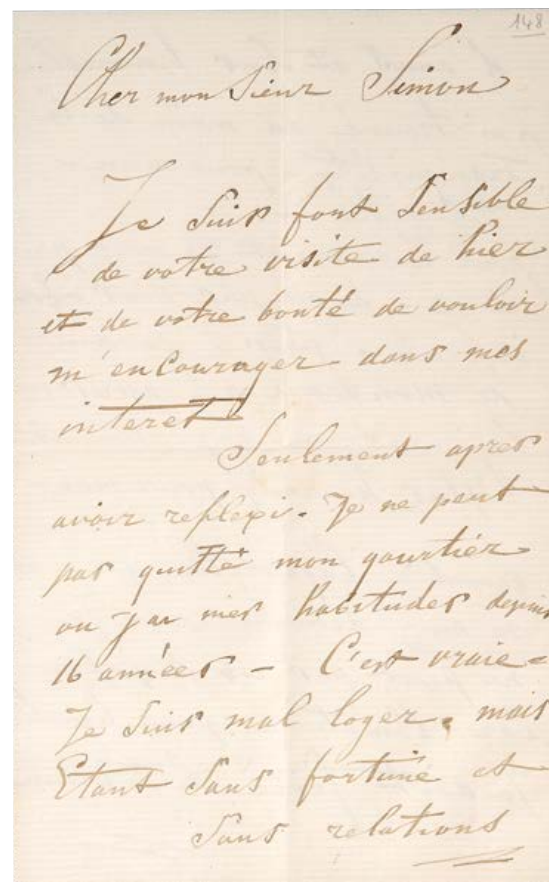 148
Cher monsieur Simon
Je suis fort sensible
de votre visite de hier
et de votre bonté de vouloir
m'encourager dans mes
interet
Seulement apres
avoir reflexi. Je ne peut
pas quitté mon quartiér
ou j'ai mes habitudes depuis
16 années - C'est vraie =
Je suis mal loger. mais
Etant sans fortune et
sans relations